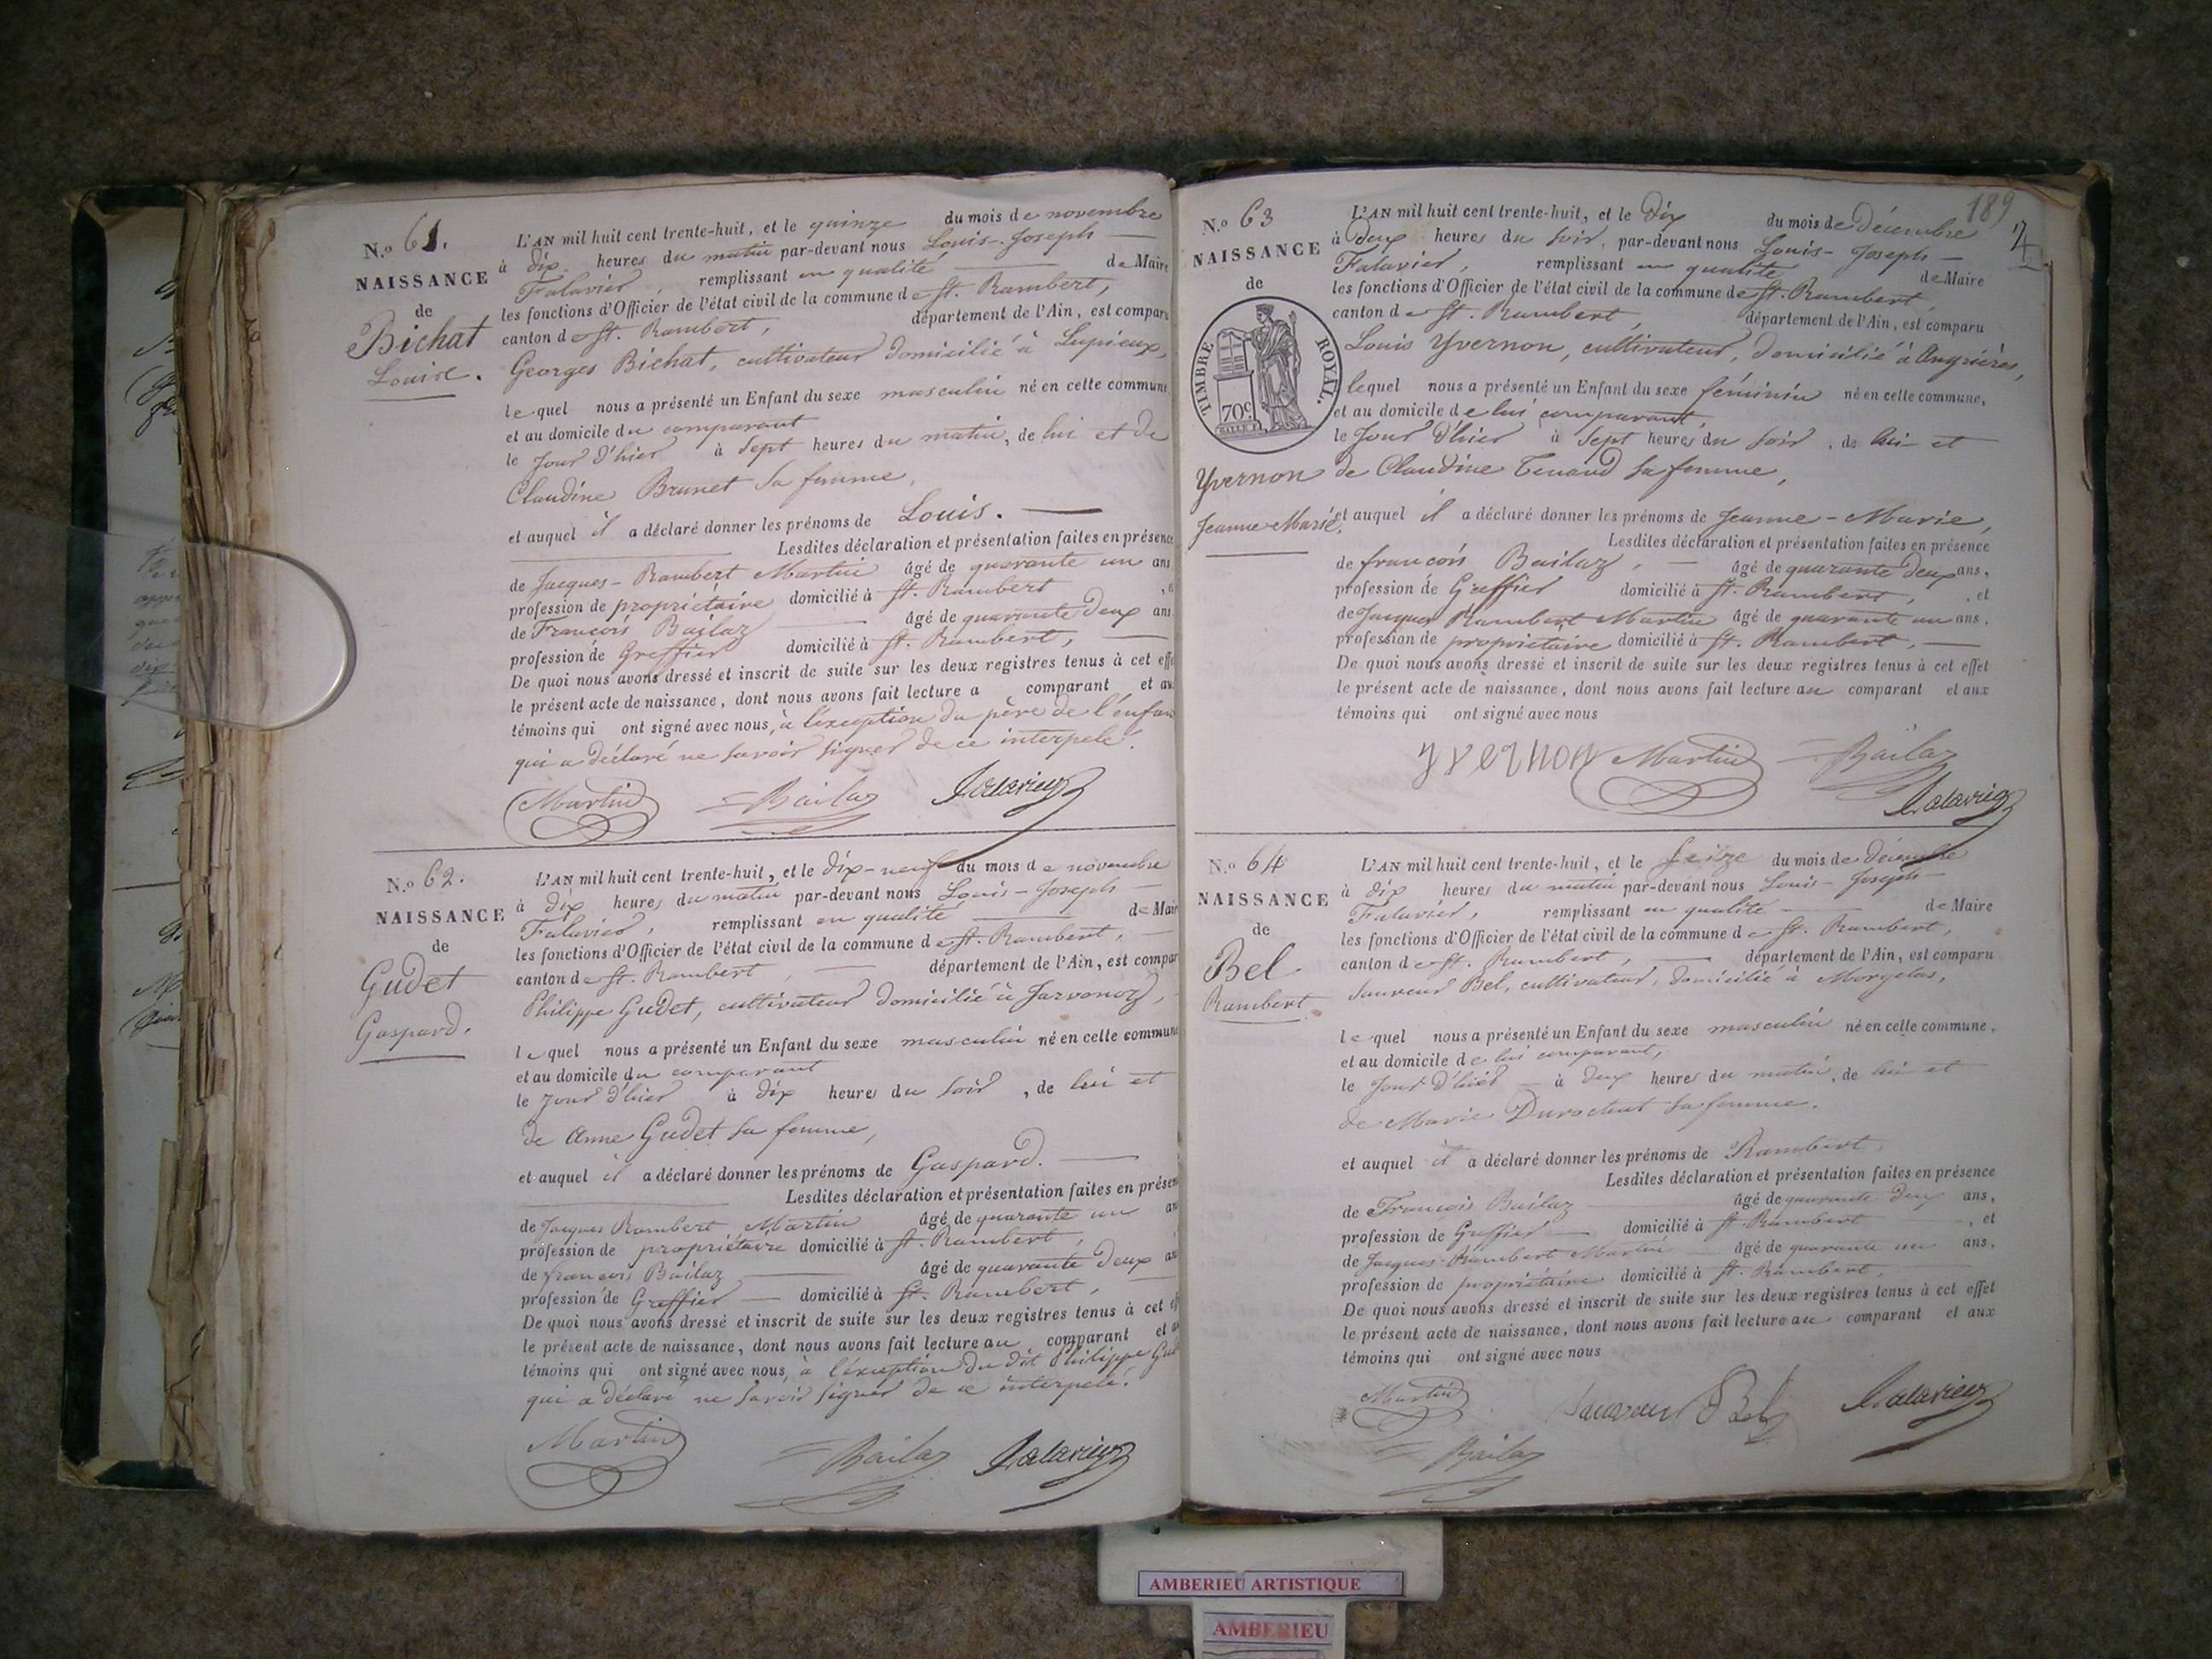 N.o 61.
NAISSANCE
de
Bichat
Louis.
L'AN mil huit cent trente-huit, et le quinze du mois de novembre
à dix heures du matin par-devant nous Louis-Joseph
Falavier, remplissant en qualité de Maire
les fonctions d'Officier de l'état civil de la commune de St. Rambert,
canton de St. Rambert, département de l'Ain, est comparu
Georges Bichat, cultivateur domicilié à Lupieux,
lequel nous a présenté un Enfant du sexe masculin né en cette commune
et au domicile du comparant
le jour d'hier à sept heures du matin, de lui et de
Claudine Brunet sa femme,
et auquel il a déclaré donner les prénoms de Louis.
Lesdites déclaration et présentation faites en présence
de Jacques-Rambert Martin âgé de quarante un ans
profession de propriétaire domicilié à St. Rambert
de François Bailaz âgé de quarante deux ans
profession de Greffier domicilié à St. Rambert,
De quoi nous avons dressé et inscrit de suite sur les deux registres tenus à cet effe
le présent acte de naissance, dont nous avons fait lecture a comparant et au
témoins qui ont signé avec nous, à l'exception du père de l'enfan
qui a déclaré ne savoir signer de ce interpelé.
Martin Bailaz Falavier
N.o 62.
NAISSANCE
de
Gudet
Gaspard.
L'AN mil huit cent trente-huit, et le dix-neuf du mois de novembre
à dix heures du matin par-devant nous Louis-Joseph
Falavier, remplissant en qualité de Mair
les fonctions d'Officier de l'état civil de la commune de St. Rambert,
canton de St. Rambert, département de l'Ain, est compar
Philippe Gudet, cultivateur domicilié à Javornoz,
lequel nous a présenté un Enfant du sexe masculin né en cette commune
et au domicile du comparant
le jour d'hier à dix heures du soir, de lui et
de Anne Gudet sa femme,
et auquel il a déclaré donner les prénoms de Gaspard.
Lesdites déclaration et présentation faites en présen
de Jacques Rambert Martin âgé de quarante un an
profession de propriétaire domicilié à St. Rambert,
de françois Bailaz âgé de quarante deux an
profession de Greffier domicilié à St. Rambert,
De quoi nous avons dressé et inscrit de suite sur les deux registres tenus à cet ef
le présent acte de naissance, dont nous avons fait lecture au comparant et a
témoins qui ont signé avec nous, à l'exception du dit Philippe Gud
qui a déclaré ne savoir signer de ce interpelé.
Martin Bailaz Falavier
189
N.o 63
NAISSANCE
de
TIMBRE ROYAL.
70c
Yvernon
Jeanne-Marie.
L'AN mil huit cent trente-huit, et le dix du mois de décembre
à deux heures du soir, par-devant nous Louis-Joseph
Falavier, remplissant en qualité de Maire
les fonctions d'Officier de l'état civil de la commune de St. Rambert
canton de St. Rambert, département de l'Ain, est comparu
Louis Yvernon, cultivateur, domicilié à Angrières,
lequel nous a présenté un Enfant du sexe féminin né en cette commune,
et au domicile de lui comparant,
le jour d'hier à sept heures du soir, de lui et
de Claudine Tenand sa femme,
et auquel il a déclaré donner les prénoms de Jeanne-Marie,
Lesdites déclaration et présentation faites en présence
de françois Bailaz, âgé de quarante deux ans,
profession de Greffier domicilié à St. Rambert, et
de Jacques Rambert Martin âgé de quarante un ans,
profession de propriétaire domicilié à St. Rambert,
De quoi nous avons dressé et inscrit de suite sur les deux registres tenus à cet effet
le présent acte de naissance, dont nous avons fait lecture au comparant et aux
témoins qui ont signé avec nous
yvernon Martin Bailaz
Falavier
N.o 64
NAISSANCE
de
Bel
Rambert
L'AN mil huit cent trente-huit, et le seize du mois de décembre
à dix heures du matin par-devant nous Louis-Joseph
Falavier, remplissant en qualité de Maire
les fonctions d'Officier de l'état civil de la commune de St. Rambert,
canton de St. Rambert, département de l'Ain, est comparu
Sauveur Bel, cultivateur, domicilié à Morgelas,
lequel nous a présenté un Enfant du sexe masculin né en cette commune,
et au domicile de lui comparant,
le jour d'hier à deux heures du matin, de lui et
de Marie Durochat sa femme.
et auquel il a déclaré donner les prénoms de Rambert,
Lesdites déclaration et présentation faites en présence
de François Bailaz âgé de quarante deux ans,
profession de Greffier domicilié à St. Rambert, et
de Jacques-Rambert Martin âgé de quarante un ans,
profession de propriétaire domicilié à St. Rambert,
De quoi nous avons dressé et inscrit de suite sur les deux registres tenus à cet effet
le présent acte de naissance, dont nous avons fait lecture au comparant et aux
témoins qui ont signé avec nous
Martin Sauveur Bel Falavier
Bailaz
AMBERIEU ARTISTIQUE
AMBERIEU